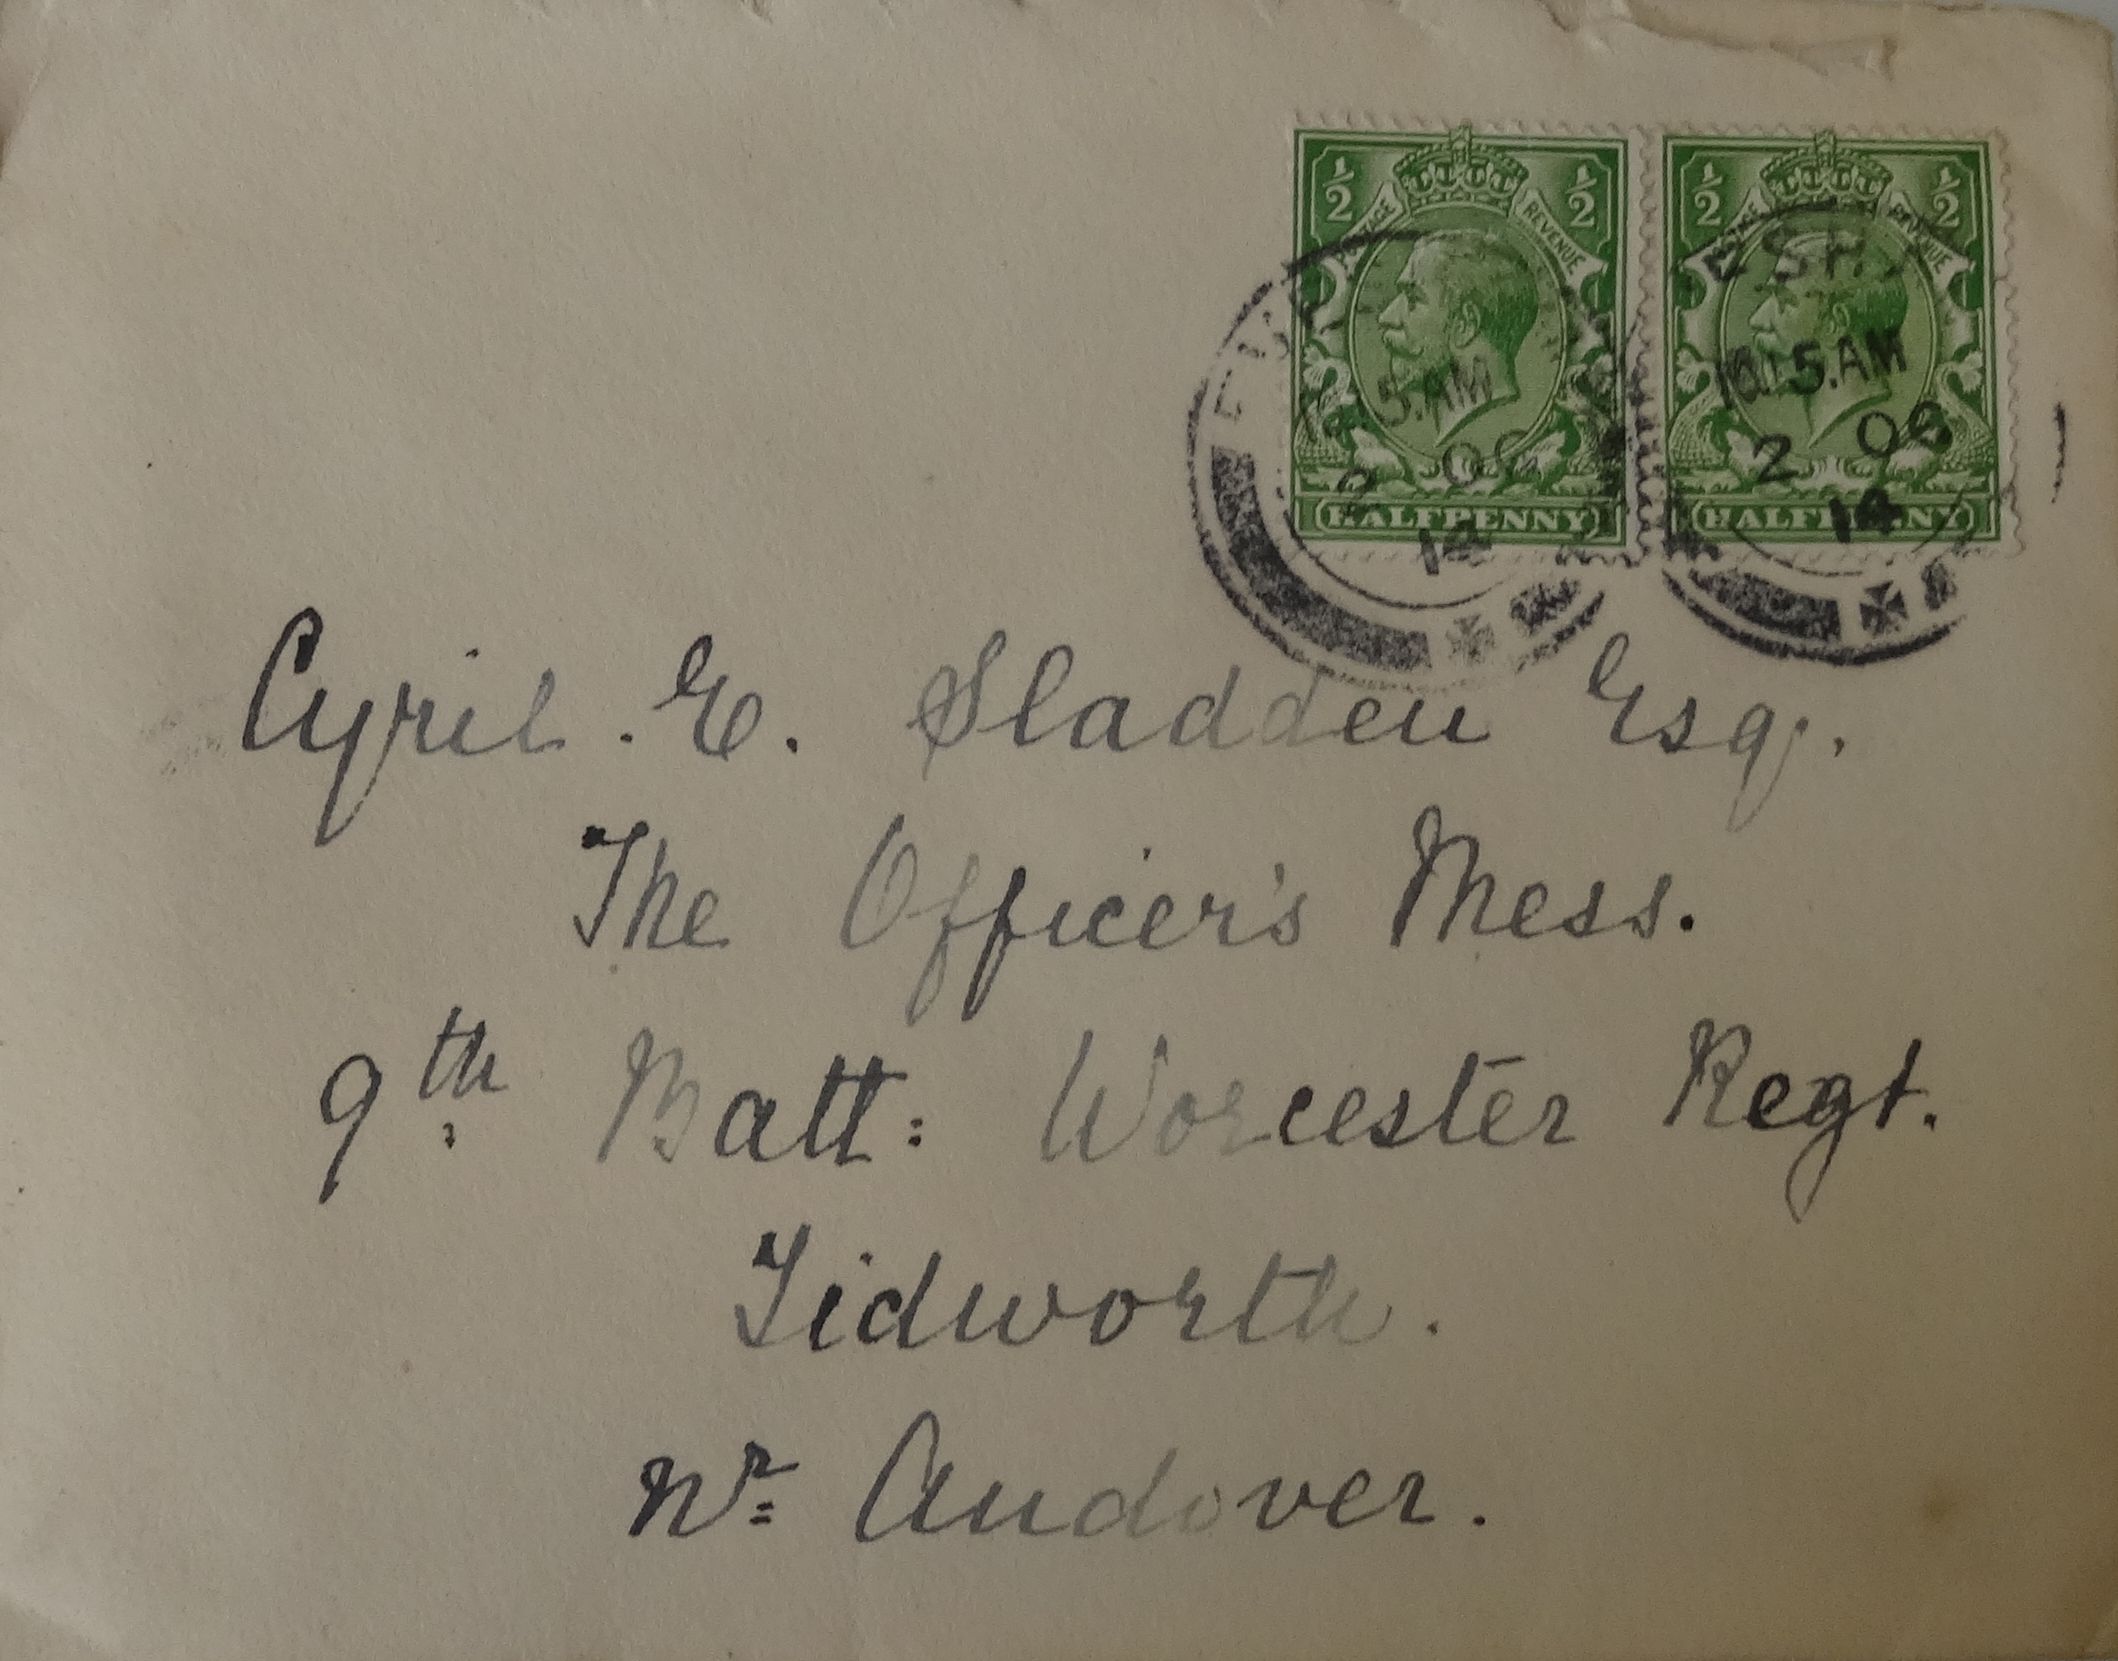 ½ ½
POSTAGE REVENUE
HALFPENNY
½ ½
POSTAGE REVENUE
HALFPENNY
5.AM
2 OC
14
ESH
10.15.AM
2 OC
14
Cyril . E. Sladden Esq.
The Officer's Mess.
9th Batt: Worcester Regt.
Tidworth.
Nr Andover.